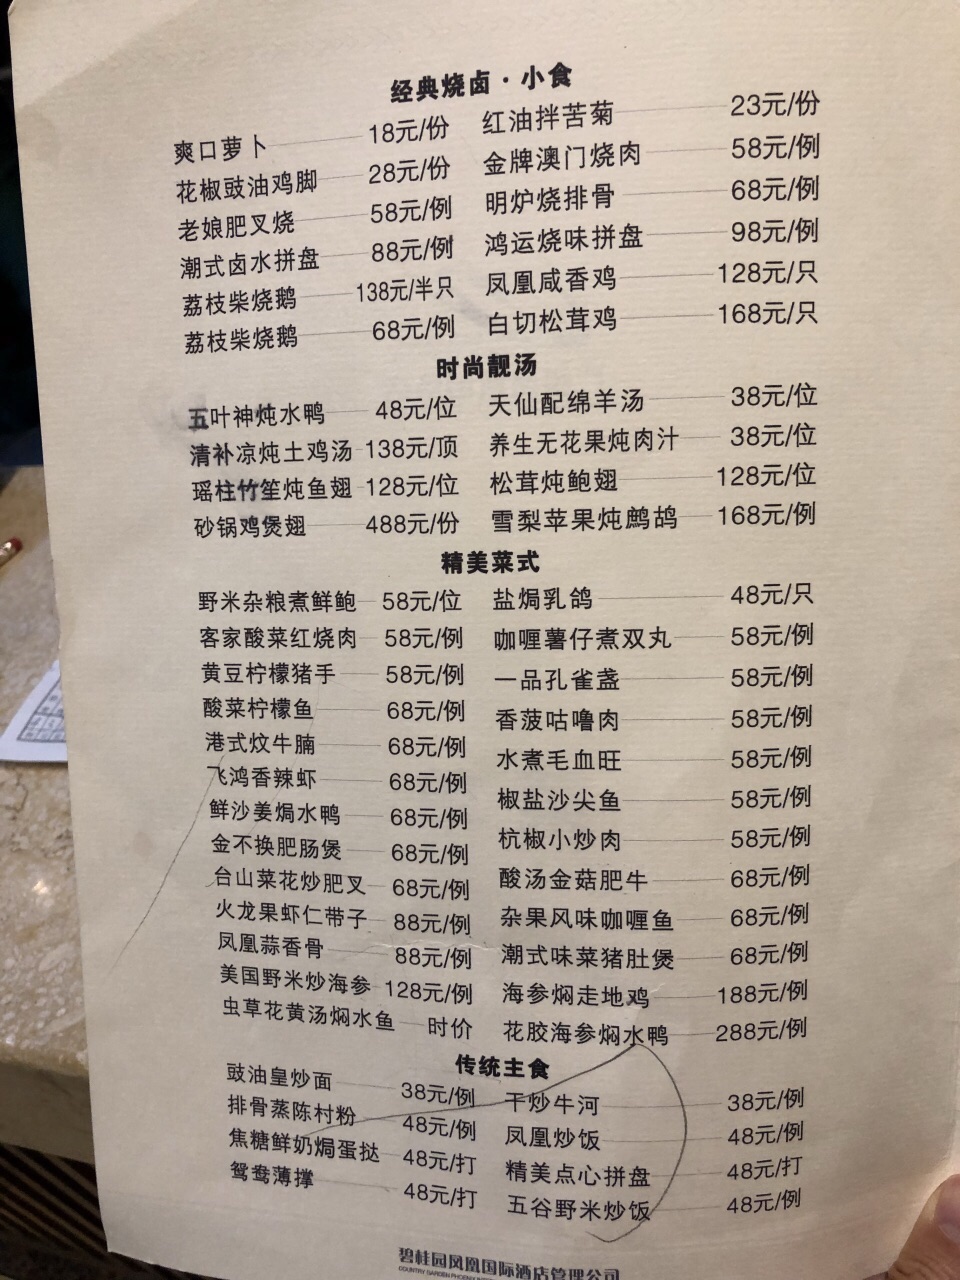 经典烧卤·小食
爽口萝卜 18元/份 红油拌苦菊 23元/份
花椒豉油鸡脚 28元/份 金牌澳门烧肉 58元/例
老娘肥叉烧 58元/例 明炉烧排骨 68元/例
潮式卤水拼盘 88元/例 鸿运烧味拼盘 98元/例
荔枝柴烧鹅 138元/半只 凤凰咸香鸡 128元/只
荔枝柴烧鹅 68元/例 白切松茸鸡 168元/只
时尚靓汤
五叶神炖水鸭 48元/位 天仙配绵羊汤 38元/位
清补凉炖土鸡汤 138元/顶 养生无花果炖肉汁 38元/位
瑶柱竹笙炖鱼翅 128元/位 松茸炖鲍翅 128元/位
砂锅鸡煲翅 488元/份 雪梨苹果炖鹧鸪 168元/例
精美菜式
野米杂粮煮鲜鲍 58元/位 盐焗乳鸽 48元/只
客家酸菜红烧肉 58元/例 咖喱薯仔煮双丸 58元/例
黄豆柠檬猪手 58元/例 一品孔雀盏 58元/例
酸菜柠檬鱼 68元/例 香菠咕噜肉 58元/例
港式炆牛腩 68元/例 水煮毛血旺 58元/例
飞鸿香辣虾 68元/例 椒盐沙尖鱼 58元/例
鲜沙姜焗水鸭 68元/例 杭椒小炒肉 58元/例
金不换肥肠煲 68元/例 酸汤金菇肥牛 68元/例
台山菜花炒肥叉 68元/例 杂果风味咖喱鱼 68元/例
火龙果虾仁带子 88元/例 潮式味菜猪肚煲 68元/例
凤凰蒜香骨 88元/例 海参焖走地鸡 188元/例
美国野米炒海参 128元/例 花胶海参焖水鸭 288元/例
虫草花黄汤焖水鱼 时价
传统主食
豉油皇炒面 38元/例 干炒牛河 38元/例
排骨蒸陈村粉 48元/例 凤凰炒饭 48元/例
焦糖鲜奶焗蛋挞 48元/打 精美点心拼盘 48元/打
鸳鸯薄撑 48元/打 五谷野米炒饭 48元/例
碧桂园凤凰国际酒店管理公司
COUNTRY GARDEN PHOENIX